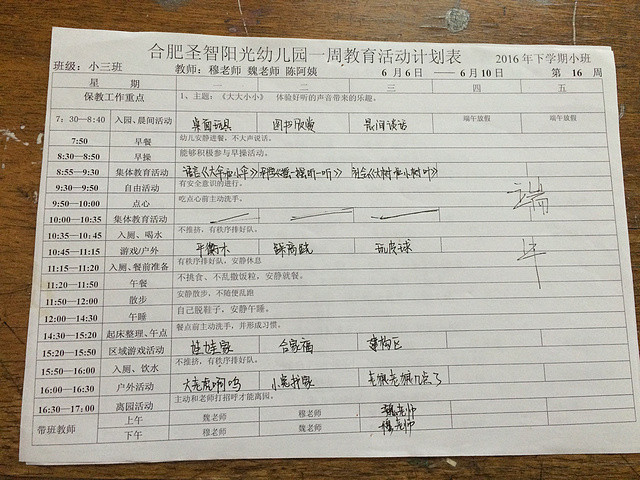 合肥圣智阳光幼儿园一周教育活动计划表
2016 年下学期小班
班级：小三班 教师：穆老师 魏老师 陈阿姨 6 月 6 日 —— 6 月 10 日 第 16 周
星 期 一 二 三 四 五
保教工作重点 1、主题：《大大小小》 体验好听的声音带来的乐趣。
7：30—8:40 入园、晨间活动 桌面玩具 图书欣赏 晨间谈话 端午放假 端午放假
7:50 早餐 幼儿安静进餐，不大声说话。
8:30—8:50 早操 能够积极参与早操活动。
8:55—9:30 集体教育活动 语言《大伞和小伞》
9:30—9:50 自由活动 有安全意识的进行。
9:50—10:00 点心 吃点心前主动洗手。
端
10:00—10:35 集体教育活动
10:35—10:45 入厕、喝水 不推挤，有秩序排好队。
10:45—11:15 游戏/户外 平衡木 玩皮球
午
11:15—11:20 入厕、餐前准备 有秩序排好队，安静休息
11:20—11:50 午餐 不挑食、不乱撒饭粒，安静就餐。
11:50—12:00 散步 安静散步，不随便乱跑
12:00—14:30 午睡 自己脱鞋子，安静午睡。
14:30—15:20 起床整理、午点 餐点前主动洗手，并形成习惯。
15:20—15:50 区域游戏活动 娃娃家 合家福 建构区
15:50—16:00 入厕、饮水 不推挤，有秩序排好队。
16:00—16:30 户外活动 小兔找家 老狼老狼几点了
16:30—17:00 离园活动 主动和老师打招呼才能离园。
带班教师 上午 魏老师 穆老师 魏老师
下午 穆老师 魏老师 穆老师